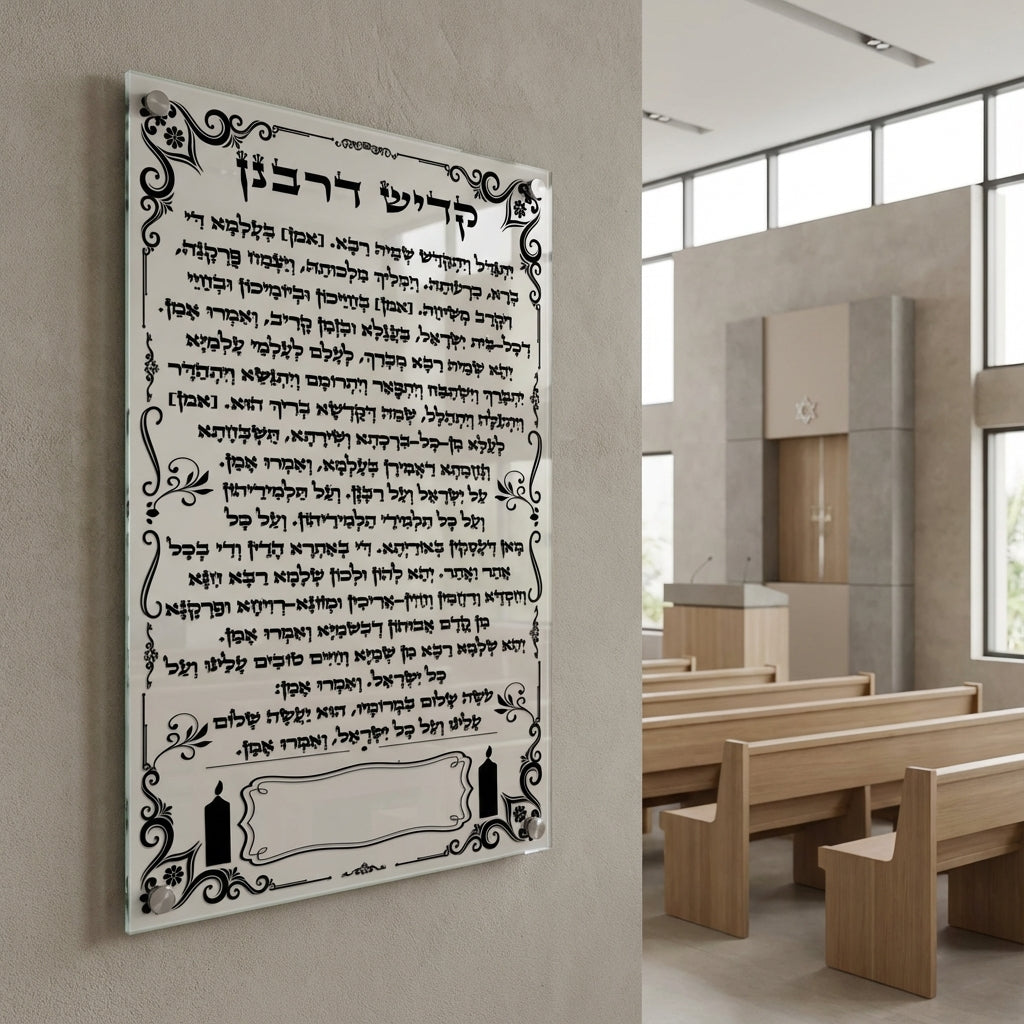 קדיש דרבנן
יִתְגַּדַּל וְיִתְקַדַּשׁ שְׁמֵיהּ רַבָּא. [אמן] בְּעָלְמָא דִּי
בְרָא, כִרְעוּתֵהּ. וְיַמְלִיךְ מַלְכוּתֵהּ, וְיַצְמַח פֻּרְקָנֵהּ,
וִיקָרֵב מְשִׁיחֵהּ. [אמן] בְּחַיֵּיכוֹן וּבְיוֹמֵיכוֹן וּבְחַיֵּי
דְכָל-בֵּית יִשְׂרָאֵל, בַּעֲגָלָא וּבִזְמַן קָרִיב, וְאִמְרוּ אָמֵן.
יְהֵא שְׁמֵיהּ רַבָּא מְבָרַךְ, לְעָלַם לְעָלְמֵי עָלְמַיָּא
יִתְבָּרַךְ וְיִשְׁתַּבַּח וְיִתְפָּאַר וְיִתְרוֹמַם וְיִתְנַשֵּׂא וְיִתְהַדָּר
וְיִתְעַלֶּה וְיִתְהַלָּל, שְׁמֵהּ דְּקֻדְשָׁא בְּרִיךְ הוּא. [אמן]
לְעֵלָּא מִן-כָּל-בִּרְכָתָא וְשִׁירָתָא, תֻּשְׁבְּחָתָא
וְנֶחֱמָתָא דַּאֲמִירָן בְּעָלְמָא, וְאִמְרוּ אָמֵן.
עַל יִשְׂרָאֵל וְעַל רַבָּנָן. וְעַל תַּלְמִידֵיהוֹן
וְעַל כָּל תַּלְמִידֵי תַלְמִידֵיהוֹן. וְעַל כָּל
מָאן דְּעָסְקִין בְּאוֹרַיְתָא. דִּי בְאַתְרָא הָדֵין וְדִי בְכָל
אֲתַר וַאֲתַר. יְהֵא לְהוֹן וּלְכוֹן שְׁלָמָא רַבָּא חִנָּא
וְחִסְדָּא וְרַחֲמִין וְחַיִּין-אֲרִיכִין וּמְזוֹנָא-רְוִיחָא וּפֻרְקָנָא
מִן קֳדָם אֲבוּהוֹן דְּבִשְׁמַיָּא וְאִמְרוּ אָמֵן.
יְהֵא שְׁלָמָא רַבָּא מִן שְׁמַיָּא וְחַיִּים טוֹבִים עָלֵינוּ וְעַל
כָּל יִשְׂרָאֵל. וְאִמְרוּ אָמֵן:
עֹשֶׂה שָׁלוֹם בִּמְרוֹמָיו, הוּא יַעֲשֶׂה שָׁלוֹם
עָלֵינוּ וְעַל כָּל יִשְׂרָאֵל, וְאִמְרוּ אָמֵן.